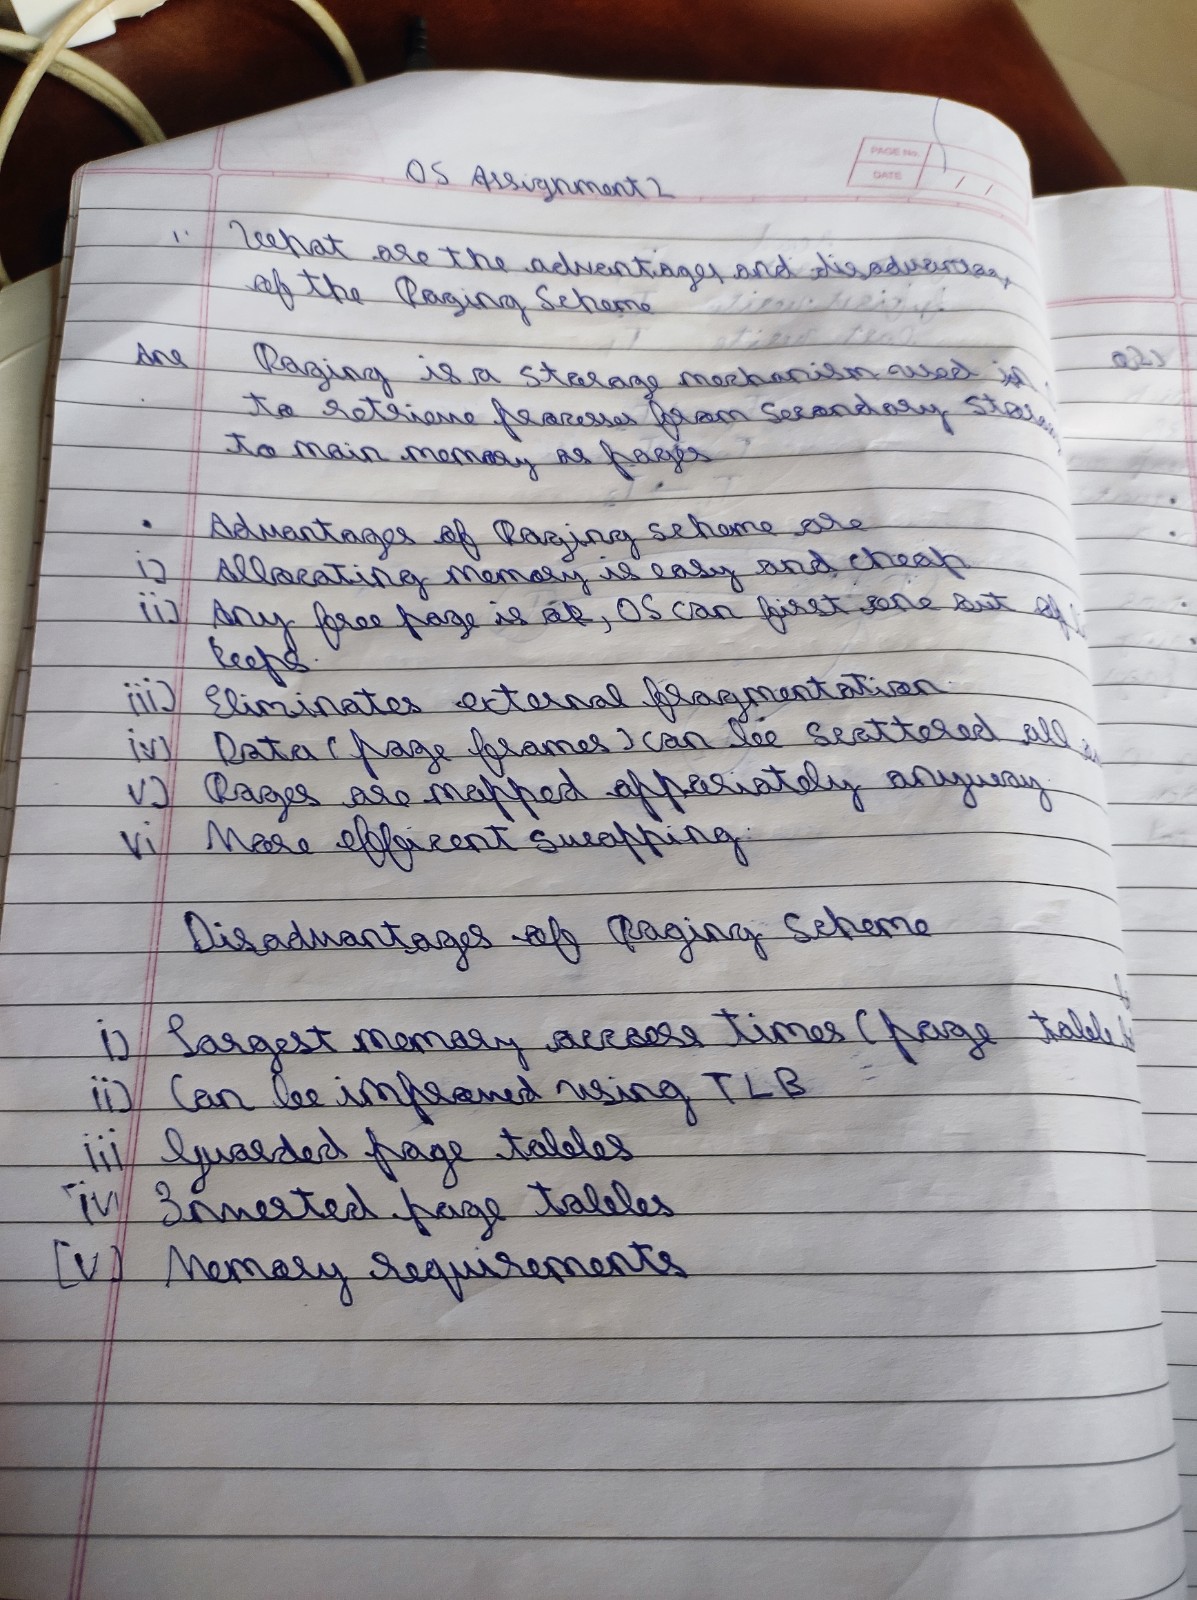 PAGE No.
DATE / /
OS Assignment 2
1. What are the advantages and disadvantages
of the Paging Scheme
Ans Paging is a storage mechanism used in
to retrieve processes from secondary
to main memory as pages
• Advantages of Paging scheme are
i) Allocating memory is easy and cheap
ii) Any free page is ok, OS can first one out of
keeps.
iii) Eliminates external fragmentation
iv) Data (page frames) can be scattered all
v) Pages are mapped appariately anyway
vi More efficent swapping.
Disadvantages of Paging Scheme
i) Largest memory access times (page table
ii) Can be improved using TLB
iii Guarded page tables
iv) Inverted page tables
[v) Memory requirements